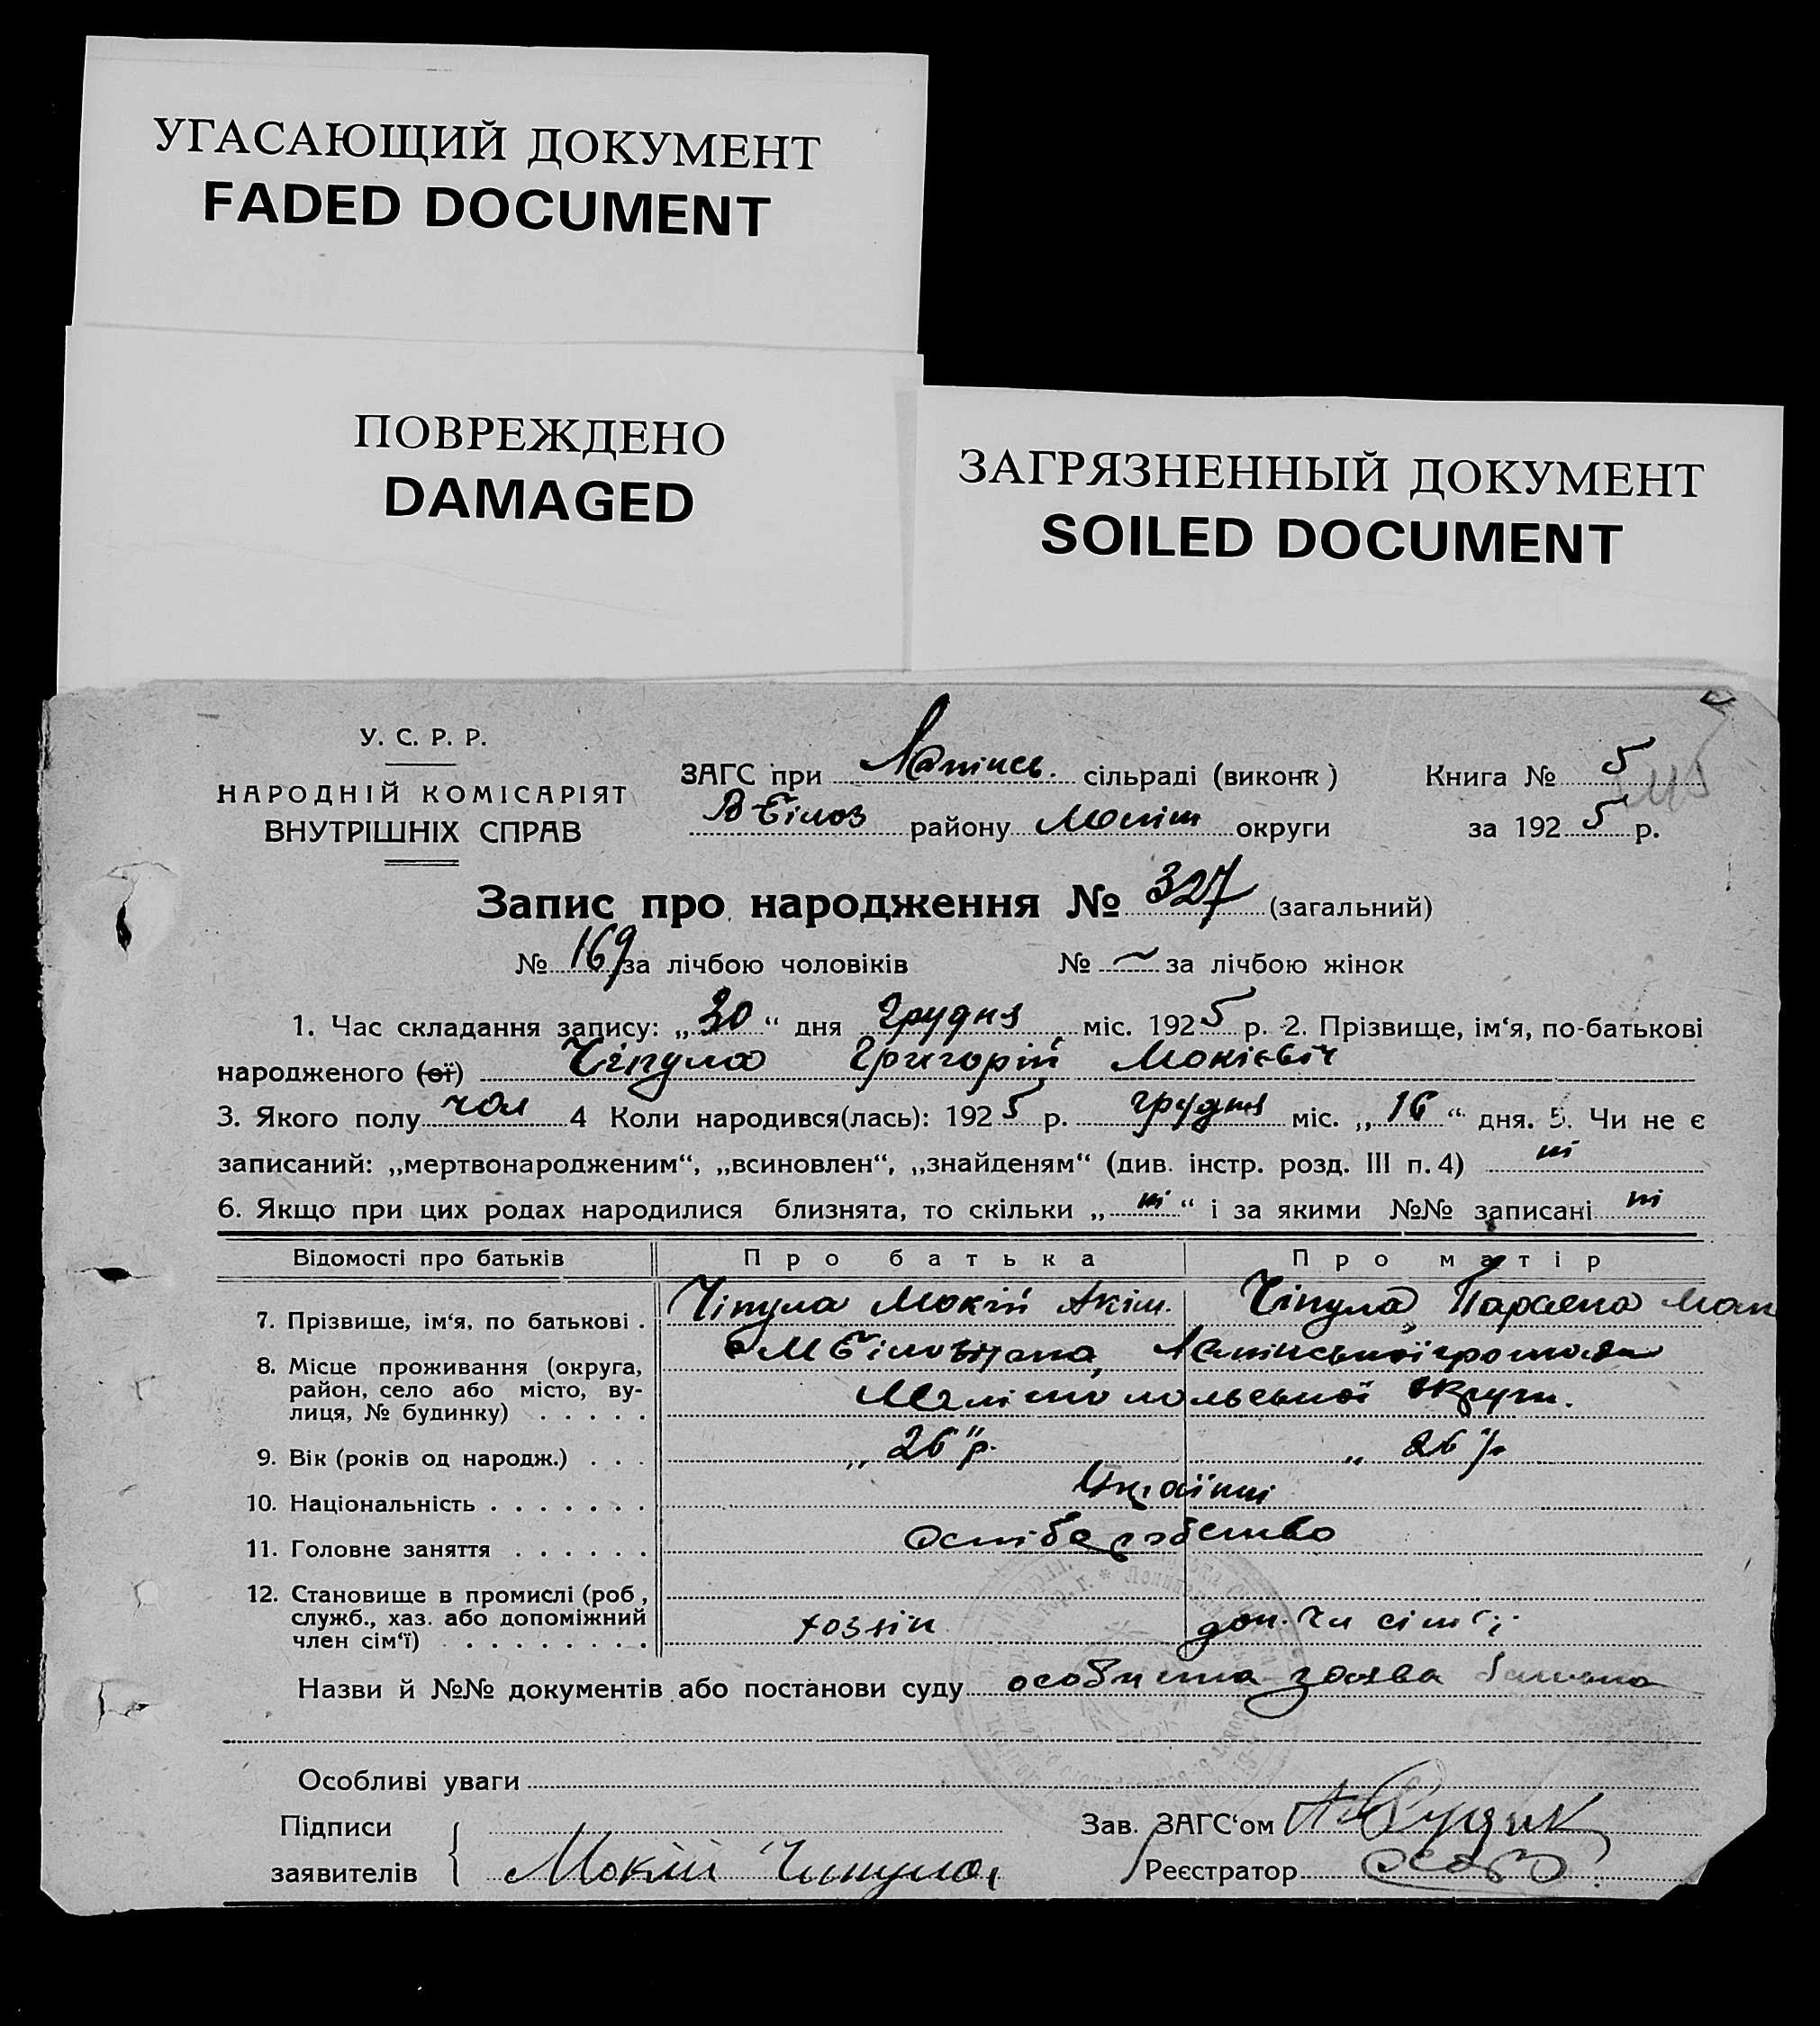 УГАСАЮЩИЙ ДОКУМЕНТ
FADED DOCUMENT
ПОВРЕЖДЕНО
DAMAGED
ЗАГРЯЗНЕННЫЙ ДОКУМЕНТ
SOILED DOCUMENT
У. С. Р. Р.
НАРОДНІЙ КОМІСАРІЯТ
ВНУТРІШНІХ СПРАВ
ЗАГС при сільраді (виконк)
В Білоз району Меліт округи
Книга № 5
за 1925 р.
Запис про народження № 327 (загальний)
№ 169 за лічбою чоловіків № — за лічбою жінок
1. Час складання запису: „30“ дня Грудня міс. 1925 р. 2. Прізвище, ім‘я, по-батькові
народженого (ої) Чіпула Григорій Мокієвіч
3. Якого полу чол 4 Коли народився(лась): 1925 р. грудня міс. „16“ дня. 5. Чи не є
записаний: „мертвонародженим“, „всиновлен“, „знайденям“ (див. інстр. розд. III п. 4) ні
6. Якщо при цих родах народилися близнята, то скільки „ні“ і за якими №№ записані ні
Відомості про батьків Про батька Про матір
7. Прізвище, ім‘я, по батькові . Чіпула Мокій Акім. Чіпула
8. Місце проживання (округа,
район, село або місто, ву-
лиця, № будинку) . . . . .
Мелітопольської округи.
9. Вік (років од народж.) . . . „26“ р. „26“ р
10. Національність . . . . . . . Українці
11. Головне заняття . . . . . .
12. Становище в промислі (роб,
служб., хаз. або допоміжний
член сім‘ї) . . . . . . . . . хозяін доп. чл сім‘ї
Назви й №№ документів або постанови суду особиста заява батька
Особливі уваги
Підписи
заявителів Мокій Чипула
Зав. ЗАГС‘ом
Реєстратор